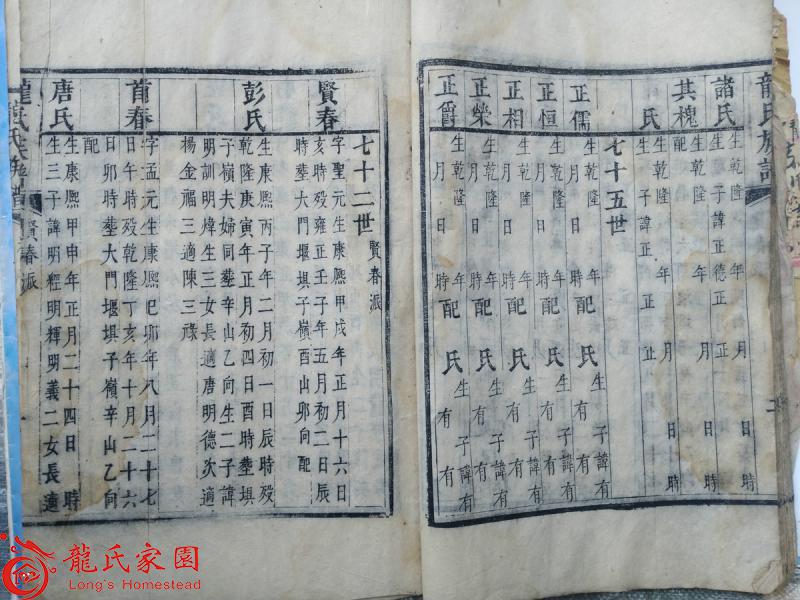 龍氏族譜
諸氏 生乾隆 年 月 日 時
生 子諱正德正
其槐 生乾隆 年 月 日 時
配
氏 生 子諱正 正
七十五世
正儒 生乾隆 年
月 日 時 配 氏 生 子諱有 有
正恒 生乾隆 年
月 日 時 配 氏 生 子諱有 有
正相 生乾隆 年
月 日 時 配 氏 生 子諱有 有
正榮 生乾隆 年
月 日 時 配 氏 生 子諱有 有
正爵 生乾隆 年
月 日 時 配 氏 生 子諱有 有
七十二世 賢春派
賢春 字聖元生康熙甲戌年正月十六日
亥時歿雍正壬子年五月初二日辰
時塟大門堰垻子嶺酉山卯向配
彭氏 生康熙丙子年二月初一日辰時歿
乾隆庚寅年正月初四日酉時塟垻
子嶺夫婦同塟辛山乙向生二子諱
明訓明煒生三女長適唐明德次適
楊金福三適陳三祿
首春 字孟元生康熙己卯年八月二十七
日午時歿乾隆丁亥年十月二十六
日卯時塟大門堰垻子嶺辛山乙向
配
唐氏 生康熙甲申年正月二十四日 時
生三子諱明經明輝明義二女長適
龍氏族譜 賢春派
龍氏家園
Long's Homestead